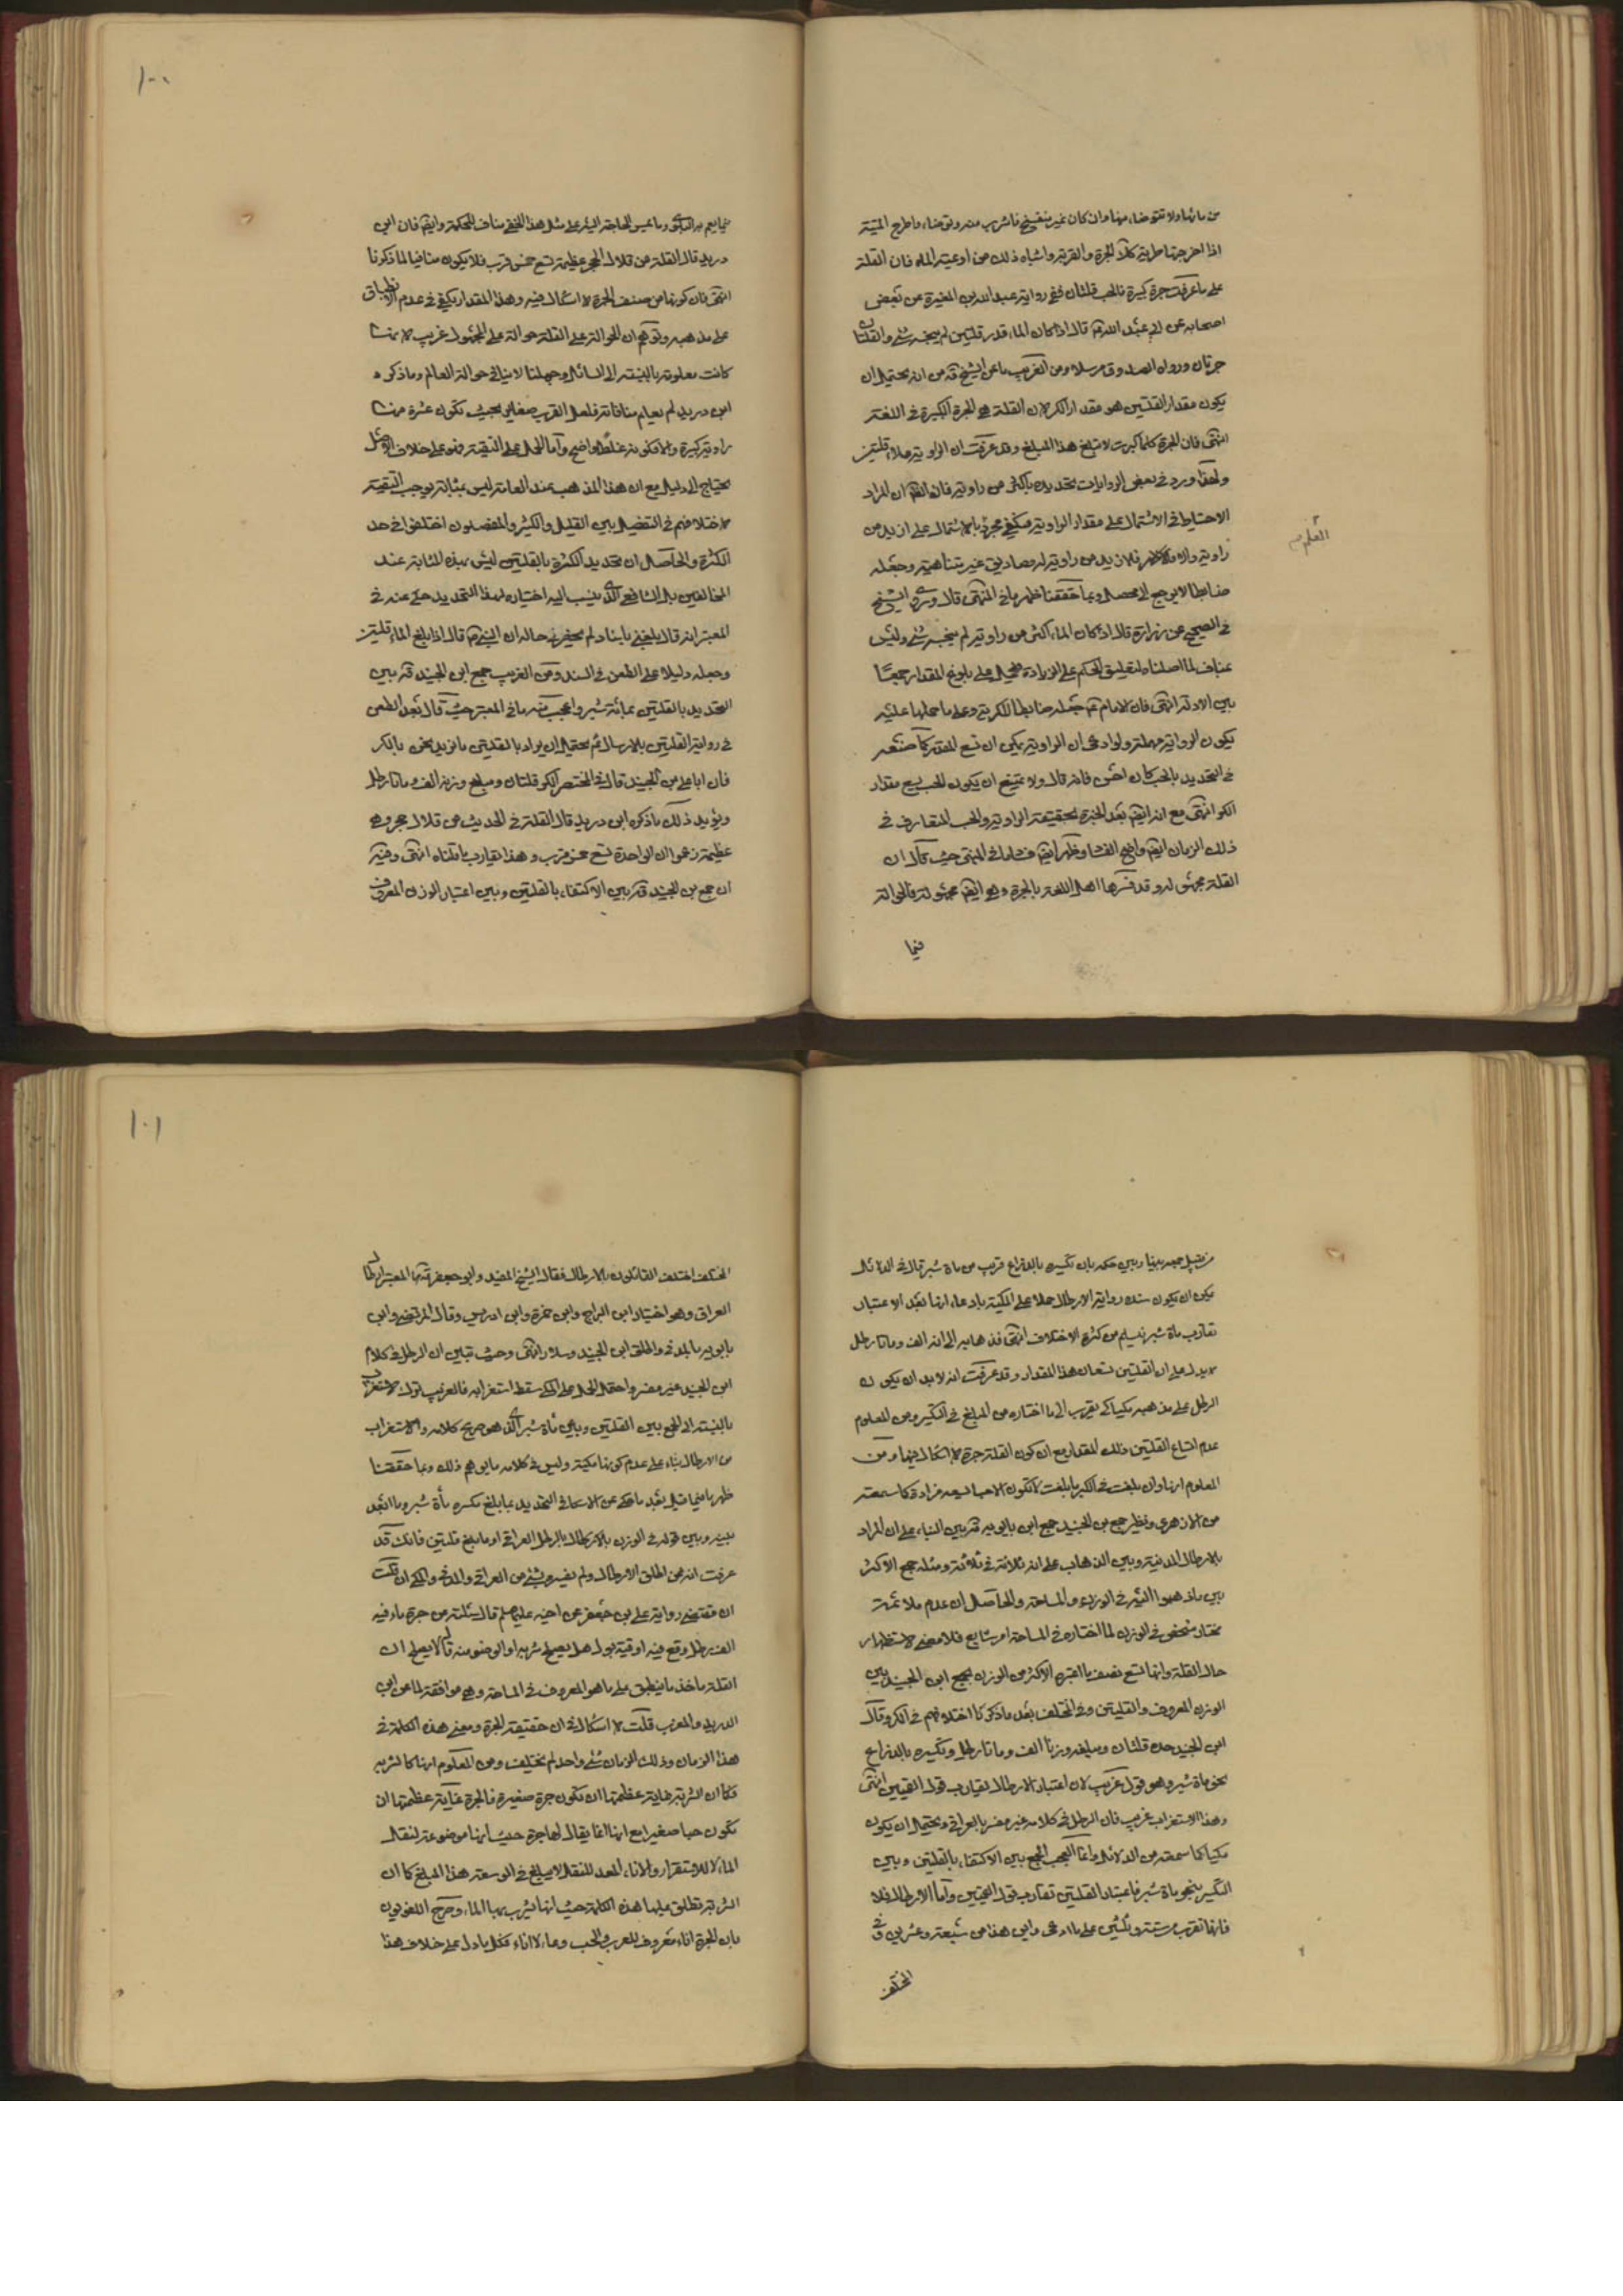 من مائها ولا تتوضأ منها وان كان غير متفسخ فاشرب منه وتوضأ واطرح الميتة
اذا اخرجتها طرية كذا الجرة والقربة واشباه ذلك من اوعية الماء فان القلة
على ما عرفت جرة كبيرة فالحب قلتان ففي رواية عبد الله بن المغيرة عن بعض
اصحابه عن ابي عبد الله ع قال اذا كان الماء قدر قلتين لم ينجسه شئ والقلتان
جرتان ورواه الصدوق مرسلا ومن الغريب ما عن الشيخ قده من انه يحتمل ان
يكون مقدار القلتين هو مقدار الكر لان القلة هي الجرة الكبيرة في اللغة
انتهى فان الجرة كلما كبرت لا تبلغ هذا المبلغ وقد عرفت ان الراوية قلتين
ولهذا ورد في بعض الروايات تحديده باكثر من راوية فان المراد
الاحتياط في الاشتمال على مقدار الراوية فيكفي مجرد الاشتمال على ازيد من
راوية والا فالازيد من راوية له مصاديق غير متناهية وجعله
ضابطا لا يرجع الى محصل وبما حققنا ظهر ما في المنتهى قال وروى الشيخ
في الصحيح عن زرارة قال اذا كان الماء اكثر من راوية لم ينجسه شئ وليس
بمناف لما اصلناه لتعليق الحكم على الزيادة فيحمل على بلوغ المقدار جمعا
بين الادلة انتهى فان الامام ع جعله ضابطا للكرية وعلى ما حملها عليه
يكون الرواية مهملة ولو ادعى ان الراوية يمكن ان تسع المقدر كما صنعه
في التحديد بالحب كان احسن فانه قال ولا يمتنع ان يكون الحب يسع مقدار
الكر انتهى مع انه ايضا بعد الخبرة بحقيقة الراوية والحب المتعارف في
ذلك الزمان ايضا واضح الفساد وظهر ايضا فساد ما في المنتهى حيث قال ان
القلة مجهولة وقد فسرها اهل اللغة بالجرة وهي ايضا مجهولة فالحوالة
فيما
القلم
١٠٠
فيما يعم به البلوى وما يمس الحاجة اليه على مثل هذا الخفي مناف للحكمة وايضا فان ابن
دريد قال القلة من قلال هجر عظيمة تسع خمس قرب فلا يكون منافيا لما ذكرنا
انتهى فان كونها من صنف الجرة لا اشكال فيه وهذا المقدار يكفي في عدم الانطباق
على مذهبه وتوهم ان الحوالة على القلة حوالة على المجهول غريب لانها
كانت معلومة بالنسبة الى السائل وجهلنا لا ينافي حوالة العالم وما ذكره
ابن دريد لم يعلم منافاته فلعل القرب صغار بحيث تكون عشرة منها
راوية كبيرة والا فكونه غلطا واضح واما الحمل على التقية فهو على خلاف الاصل
يحتاج الى دليل مع ان هذا المذهب عند العامة ليس بمثابة توجب التقية
لاختلافهم في التفصيل بين القليل والكثير والمفصلون اختلفوا في حد
الكثرة والحاصل ان تحديد الكثرة بالقلتين ليس بهذه المثابة عند
المخالفين بل الشافعي الذي ينسب اليه اختيار هذا التحديد حكي عنه في
المعتبر انه قال بلغني باسناد لم يحضرني حاله ان النبي ص قال اذا بلغ الماء قلتين
وجعله دليلا على الطعن في السند ومن الغريب جمع ابن الجنيد قده بين
التحديد بالقلتين بمائة شبر واعجب منه ما في المعتبر حيث قال بعد الطعن
في رواية القلتين بالارسال ثم يحتمل ان يراد بالقلتين ما نريد نحن بالكر
فان ابا علي بن الجنيد قال في المختصر الكر قلتان ومبلغ وزنه الف ومائتا رطل
ويؤيد ذلك ما ذكره ابن دريد قال القلة في الحديث من قلال هجر وهي
عظيمة زعموا ان الواحدة تسع خمس قرب وهذا يقارب ما قلناه انتهى وفيه
ان جمع بن الجنيد قده بين الاكتفاء بالقلتين وبين اعتبار الوزن المعروف
جمعه بينها وبين حكمه بان تكسيره بالذراع قريب من مائة شبر قال في الدلائل
يمكن ان يكون سنده رواية الارطال حملا على المكية بادعاء انها بعد الاعتبار
تقارب مائة شبر نسيلم من كثرة الاختلاف انتهى فذهابه الى انه الف ومائتا رطل
لا يدل على ان القلتين تسعان هذا المقدار وقد عرفت انه لابد ان يكون
الرطل على مذهبه مكيا كي يقرب الى ما اختاره من المبلغ في التكسير ومن المعلوم
عدم اتساع القلتين ذلك المقدار مع ان كون القلة جرة لا اشكال فيها ومن
المعلوم انها وان بلغت في الكبر ما بلغت لا تكون الا حبا يسعه مزادة كما سمعته
من الازهري ونظير جمع بن الجنيد جمع ابن بابويه قده بين البناء على ان المراد
بالارطال المدنية وبين الذهاب على انه ثلاثة في ثلاثة ومثله جمع الاكثر
بين ما ذهبوا اليه في الوزن والمساحة والحاصل ان عدم ملائمة
مختار شخص في الوزن لما اختاره في المساحة امر شايع فلا معنى لاستظهار
حال القلة وانها تسع نصف ما اعتبره الاكثر من الوزن بجمع ابن الجنيد بين
الوزن المعروف والقلتين وفي المختلف بعد ما ذكر اختلافهم في الكر وقال
ابن الجنيد حده قلتان ومبلغه وزنا الف ومائتا رطل وتكسيره بالذراع
نحو مائة شبر وهو قول غريب لان اعتبار الارطال يقارب قول القميين انتهى
وهذا الاستغراب غريب فان الرطل في كلامه غير مفسر بالعراقي ويحتمل ان يكون
مكيا كما سمعته من الدلائل وانما العجب الجمع بين الاكتفاء بالقلتين وبين
التكسير بنحو مائة شبر فاعتبار القلتين تقارب قول القميين واما الارطال فلا
فانها تقرب من ستة وثلثين على ما ادعى واين هذا من سبعة وعشرين وفي
المختلف
١٠١
المختلف اختلف القائلون بالارطال فقال الشيخ المفيد وابو جعفر المعتبر ارطال
العراق وهو اختيار ابن البراج وابن حمزة وابن ادريس وقال المرتضى وابن
بابويه بالمدني واطلق ابن الجنيد وسلار انتهى وحيث تبين ان الرطل في كلام
ابن الجنيد غير مفسر واحتمل الحمل على المكي سقط استغرابه فالغريب ترك الاستغراب
بالنسبة الى الجمع بين القلتين وبين مائة شبر الذي هو صريح كلامه والاستغراب
من الارطال بناء على عدم كونها مكية وليس في كلامه ما يوهم ذلك وبما حققنا
ظهر ما فيما قيل بعد ما حكي عن الاسكافي التحديد بما بلغ تكسيره مائة شبر وما ابعد
بينه وبين قوله في الوزن بالارطال بالرطل العراقي او ما بلغ قلتين فانك قد
عرفت انه ممن اطلق الارطال ولم يفسره بشئ من العراقي والمدني والمكي ان قلت
ان مقتضى رواية علي بن جعفر عن اخيه عليهما السلم قال سئلته عن جرة ماء فيه
الف رطل وقع فيه اوقية بول هل يصلح شربه او الوضوء منه قال لا يصلح ان
القلة ماخذ ما ينطبق على ما هو المعروف في المساحة وهي موافقة لما عن ابن
الدريد والمغرب قلت لا اشكال في ان حقيقة الجرة ومعنى هذه الكلمة في
هذا الزمان وذلك الزمان شئ واحد لم يختلف ومن المعلوم انها كالشربة
فكما ان الشربة نهاية عظمتها ان تكون جرة صغيرة فالجرة غاية عظمتها ان
تكون حبا صغيرا مع انها انما يقال لها جرة حيث انها موضوعة لنقل
الماء لا للاستقرار والاناء المعد للنقل لا يبلغ في الوسعة هذا المبلغ كما ان
الشربة تطلق عليها هذه الكلمة حيث انها يشرب بها الماء وصرح اللغويون
بان الجرة اناء معروف للعرب والحب وعاء لا اناء فكل ما دل على خلاف هذا